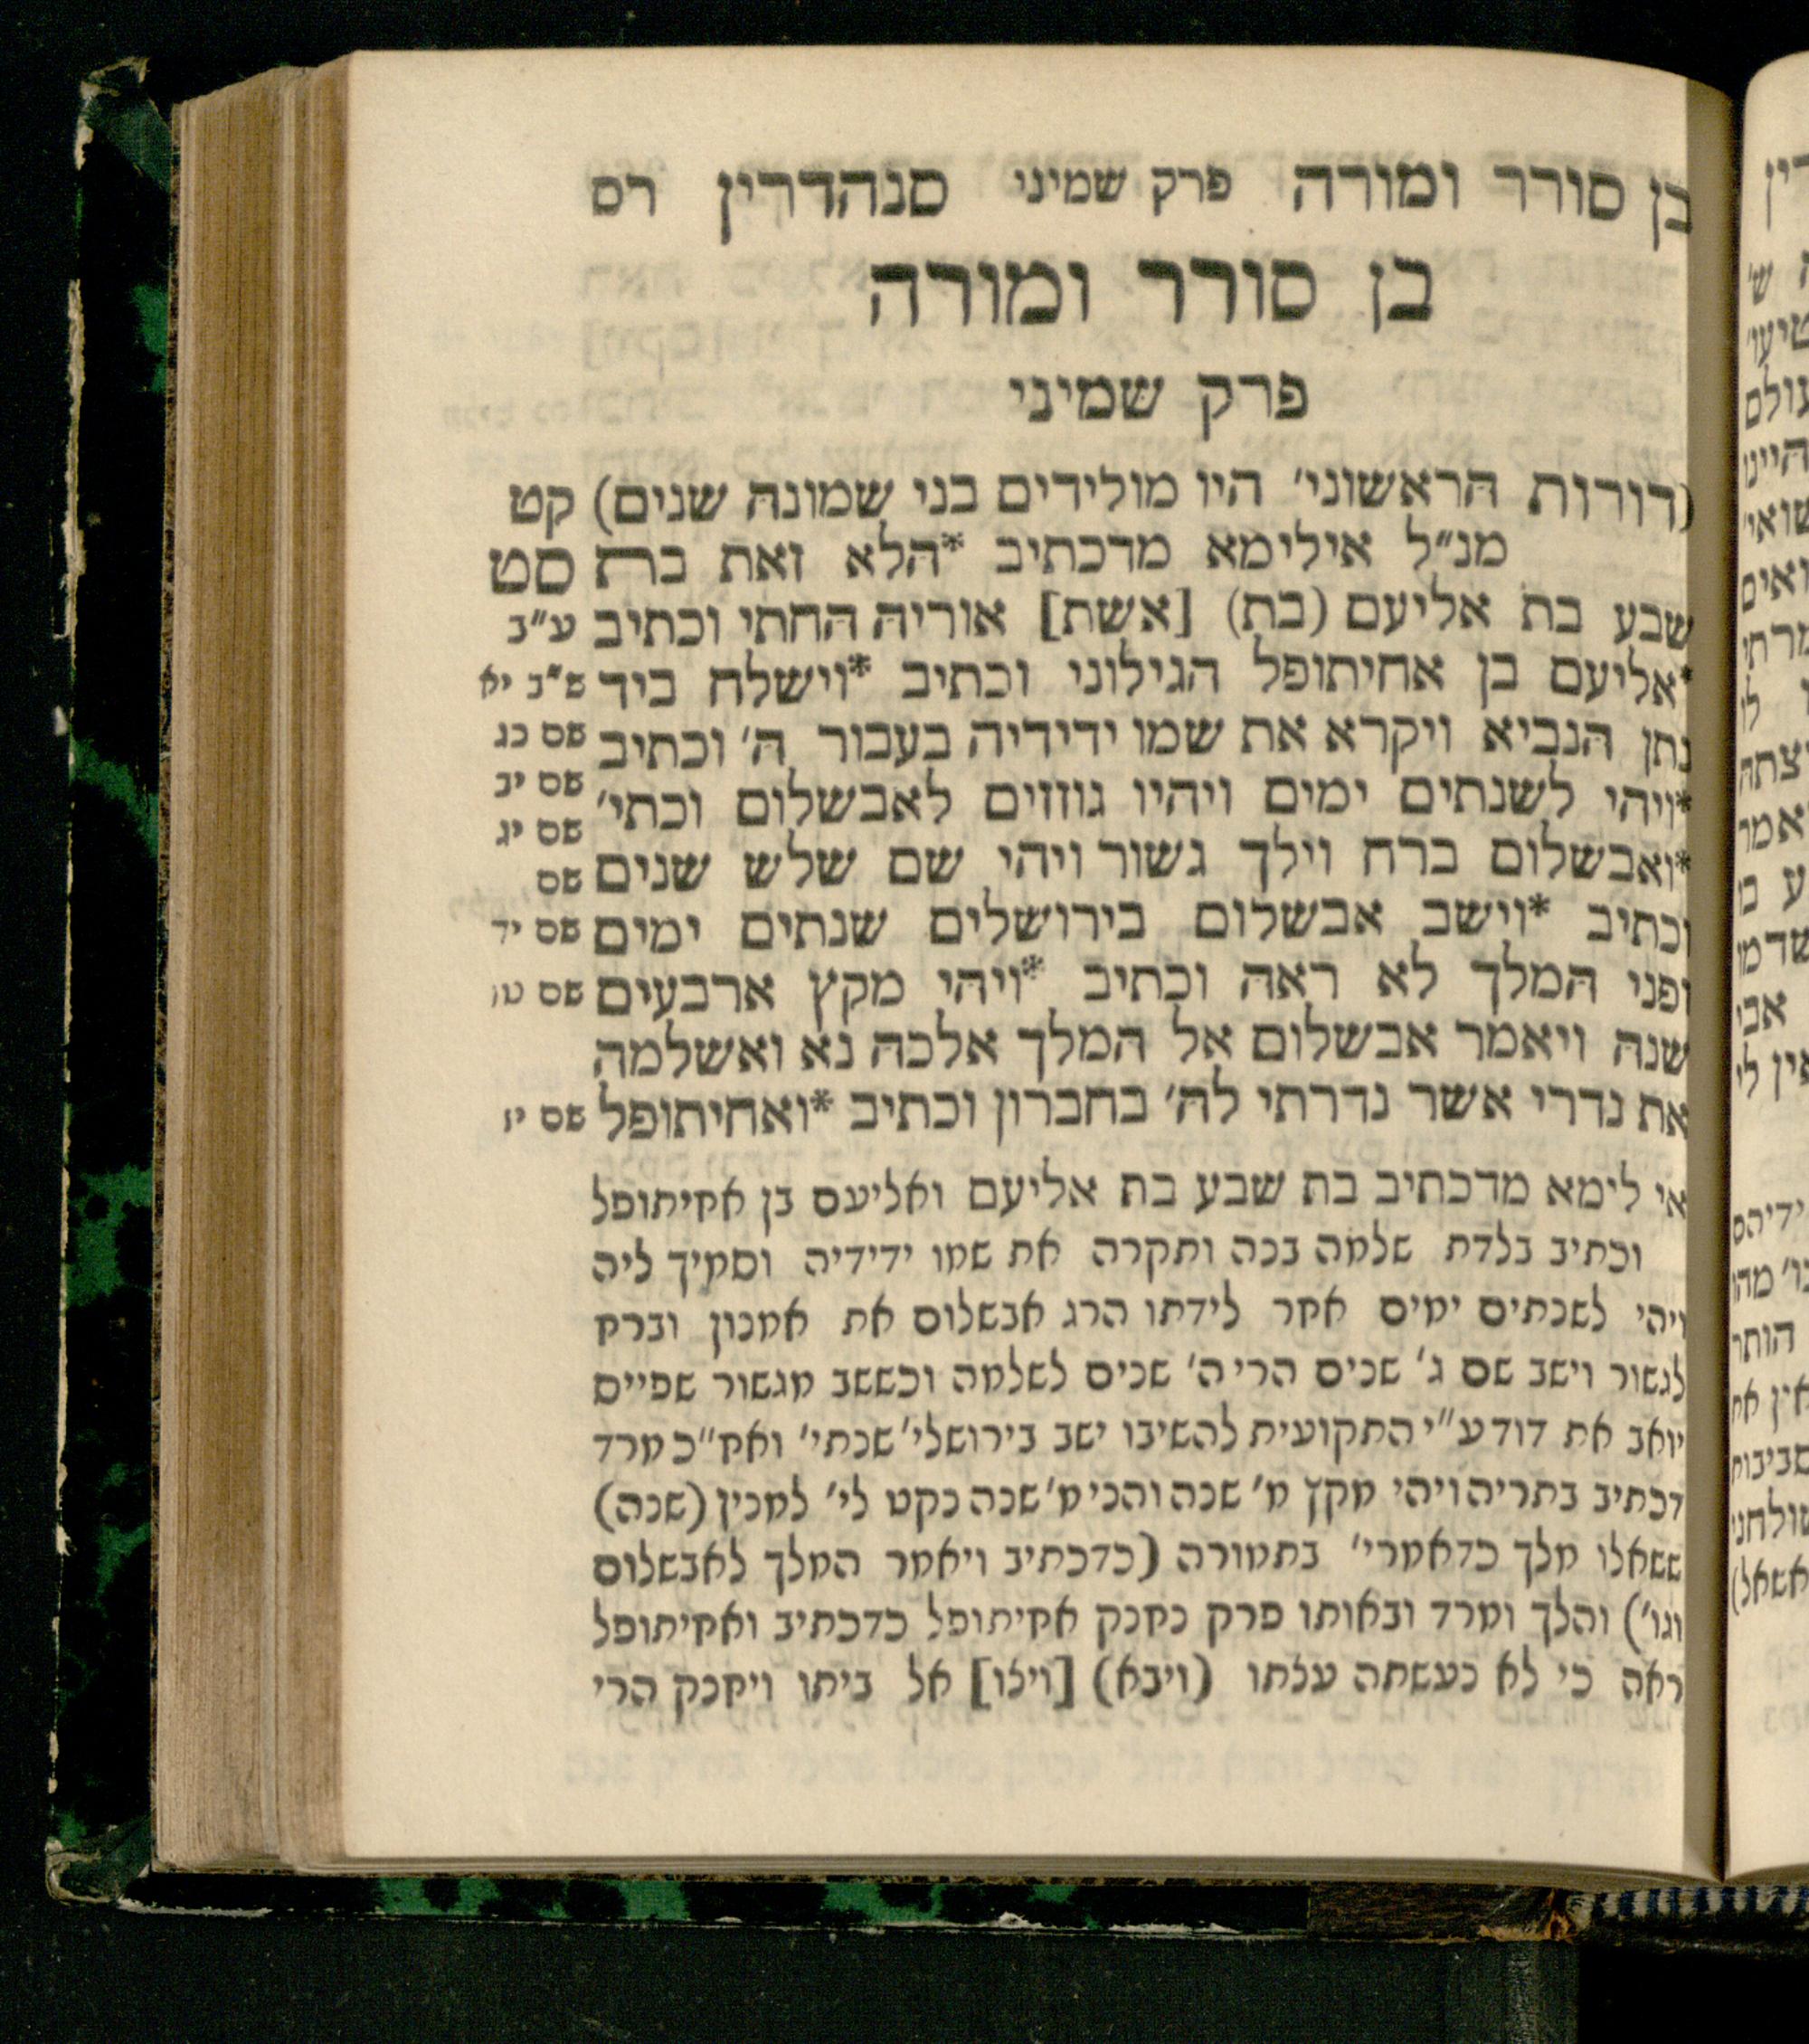 בן סורר ומורה פרק שמיני סנהדרין רס
בן סורר ומורה
פרק שמיני
(דורות הראשוני׳ היו מולידים בני שמונה שנים) קט
מנ״ל אילימא מדכתיב *הלא זאת בת סט
שבע בת אליעם (בת) [אשת] אוריה החתי וכתיב ע״ב
*אליעם בן אחיתופל הגילוני וכתיב *וישלח ביד ש״ב יא
נתן הנביא ויקרא את שמו ידידיה בעבור ה׳ וכתיב שם כג
*ויהי לשנתים ימים ויהיו גוזזים לאבשלום וכתי׳ שם יב
*ואבשלום ברח וילך גשור ויהי שם שלש שנים שם יג
שם
וכתיב *וישב אבשלום בירושלים שנתים ימים שם יד
ופני המלך לא ראה וכתיב *ויהי מקץ ארבעים שם טו
שנה ויאמר אבשלום אל המלך אלכה נא ואשלמה
את נדרי אשר נדרתי לה׳ בחברון וכתיב *ואחיתופל שם יז
אי לימא מדכתיב בת שבע בת אליעם ואליעם בן אחיתופל
וכתיב בלדת שלמה בנה ותקרה את שמו ידידיה וסמיך ליה
ויהי לשנתים ימים אחר לידתו הרג אבשלום את אמנון וברח
לגשור וישב שם ג׳ שנים הרי ה׳ שנים לשלמה וכששב מגשור שפייס
יואב את דוד ע״י התקועית להשיבו ישב בירושלי׳ שנתי׳ ואח״כ מרד
דכתיב בתריה ויהי מקץ מ׳ שנה והני מ׳ שנה נקט לי׳ למנין (שנה)
ששאלו מלך כדאמרי׳ בתמורה (כדכתיב ויאמר המלך לאבשלום
וגו׳) והלך ומרד ובאותו פרק נחנק אחיתופל כדכתיב ואחיתופל
ראה כי לא נעשתה עצתו (ויבא) [וילו] אל ביתו ויחנק הרי